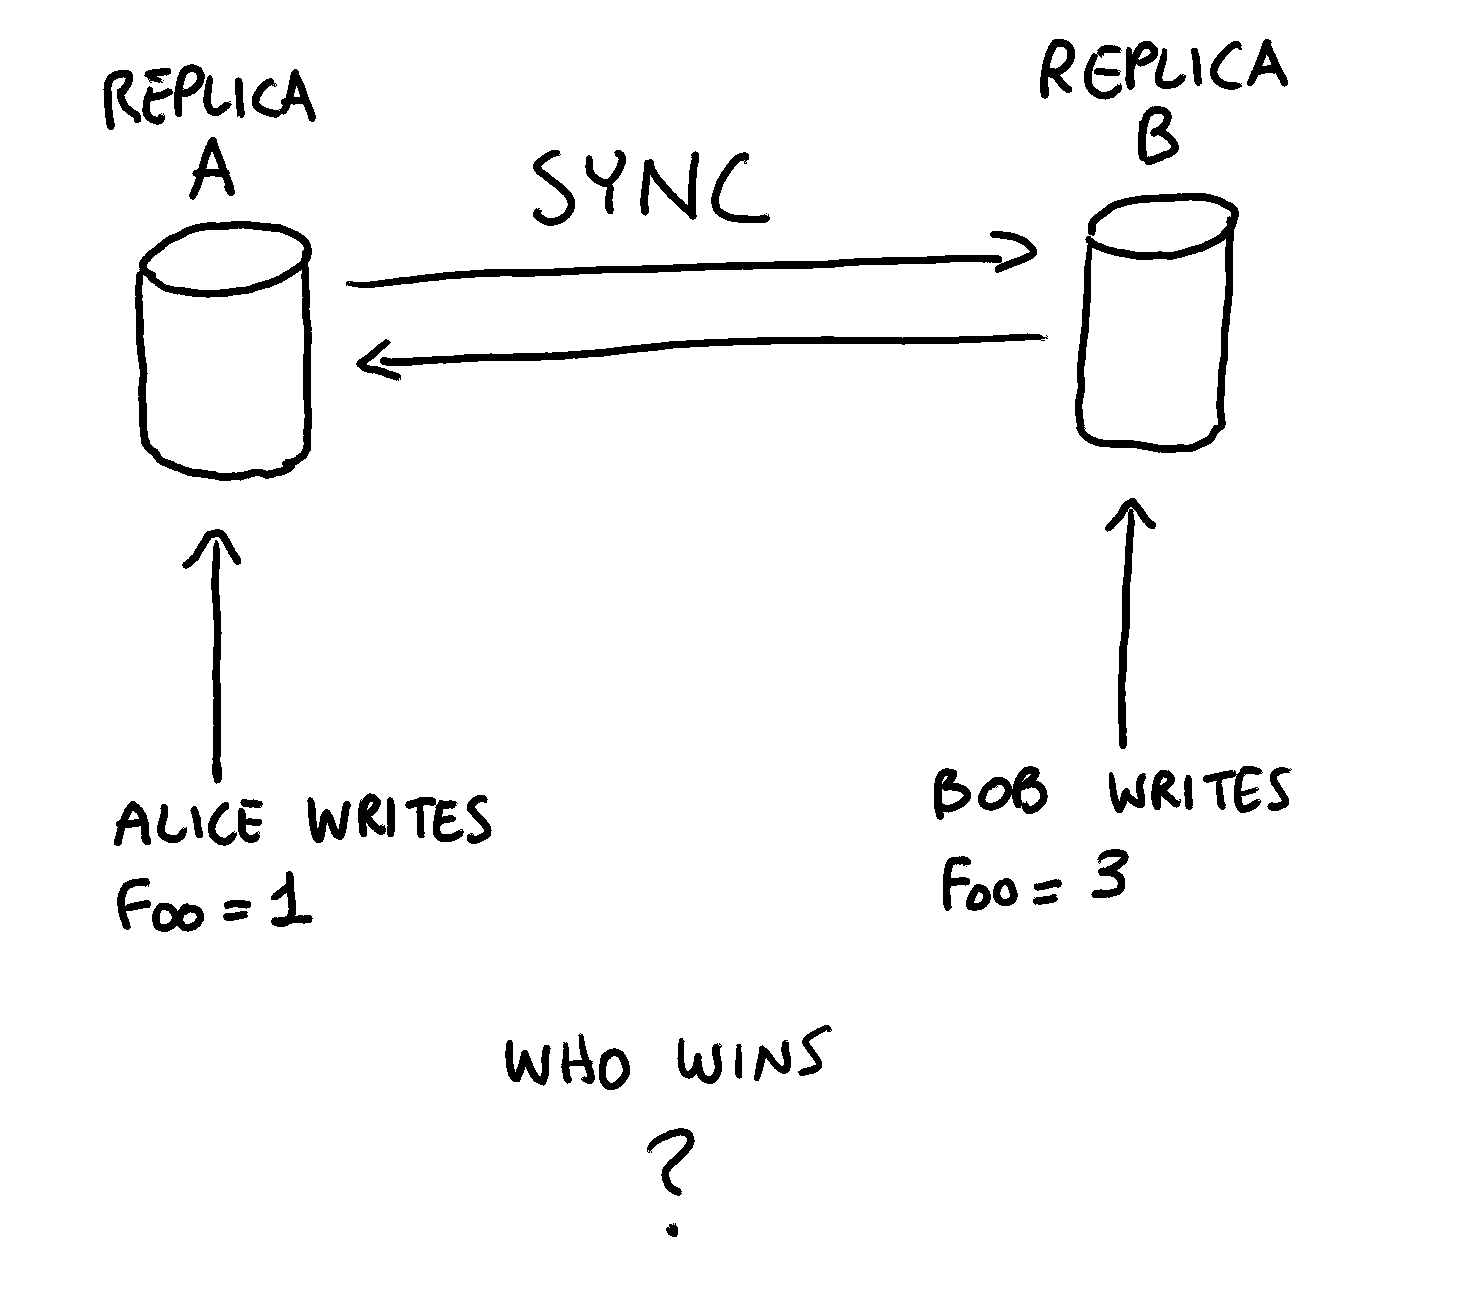 REPLICA
A
REPLICA
B
SYNC
ALICE WRITES
Foo = 1
BOB WRITES
Foo = 3
WHO WINS
?